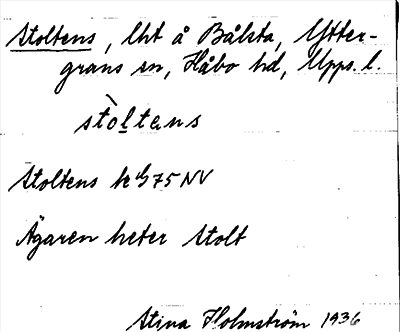 Stoltens, lht å Bålsta, Ytter-
grans sn, Håbo hd, Upps. l.
stòltens
Stoltens 75 NV
Ägaren heter Stolt
Stina Holmström 1936